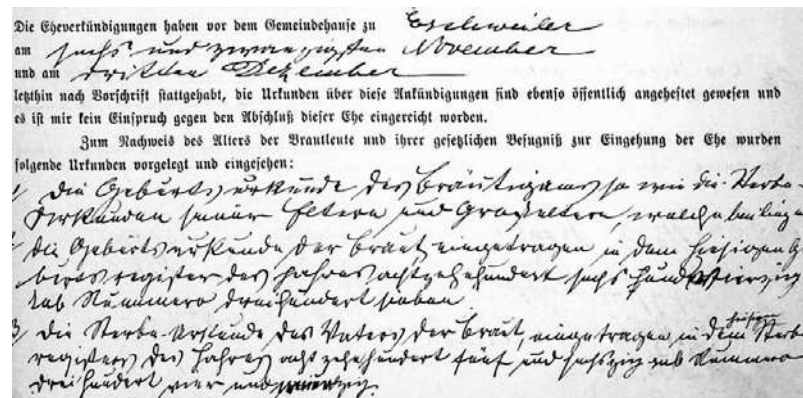 Die Eheverkündigungen haben vor dem Gemeindehause zu Eschweiler
am sechs und zwanzigsten November
und am dritten Dezember
letzthin nach Vorschrift stattgehabt, die Urkunden über diese Ankündigungen sind ebenso öffentlich angeheftet gewesen und
es ist mir kein Einspruch gegen den Abschluß dieser Ehe eingereicht worden.
Zum Nachweis des Alters der Brautleute und ihrer gesetzlichen Befugniß zur Eingehung der Ehe wurden
folgende Urkunden vorgelegt und eingesehen:
1/ Die Geburtsurkunde des Bräutigams so wie die Sterbe-
Urkunden seiner Eltern und Großeltern, welche beiliegen
2/ die Geburtsurkunde der Braut, eingetragen in dem hiesigen Ge
burtsregister des Jahres achtzehnhundert sechs und vierzig
sub Nummero dreihundert sieben
3/ die Sterbe-Urkunde des Vaters der Braut, eingetragen in dem hiesigen Sterbe
register des Jahres achtzehnhundert fünf und sechszig sub Nummero
dreihundert vier und